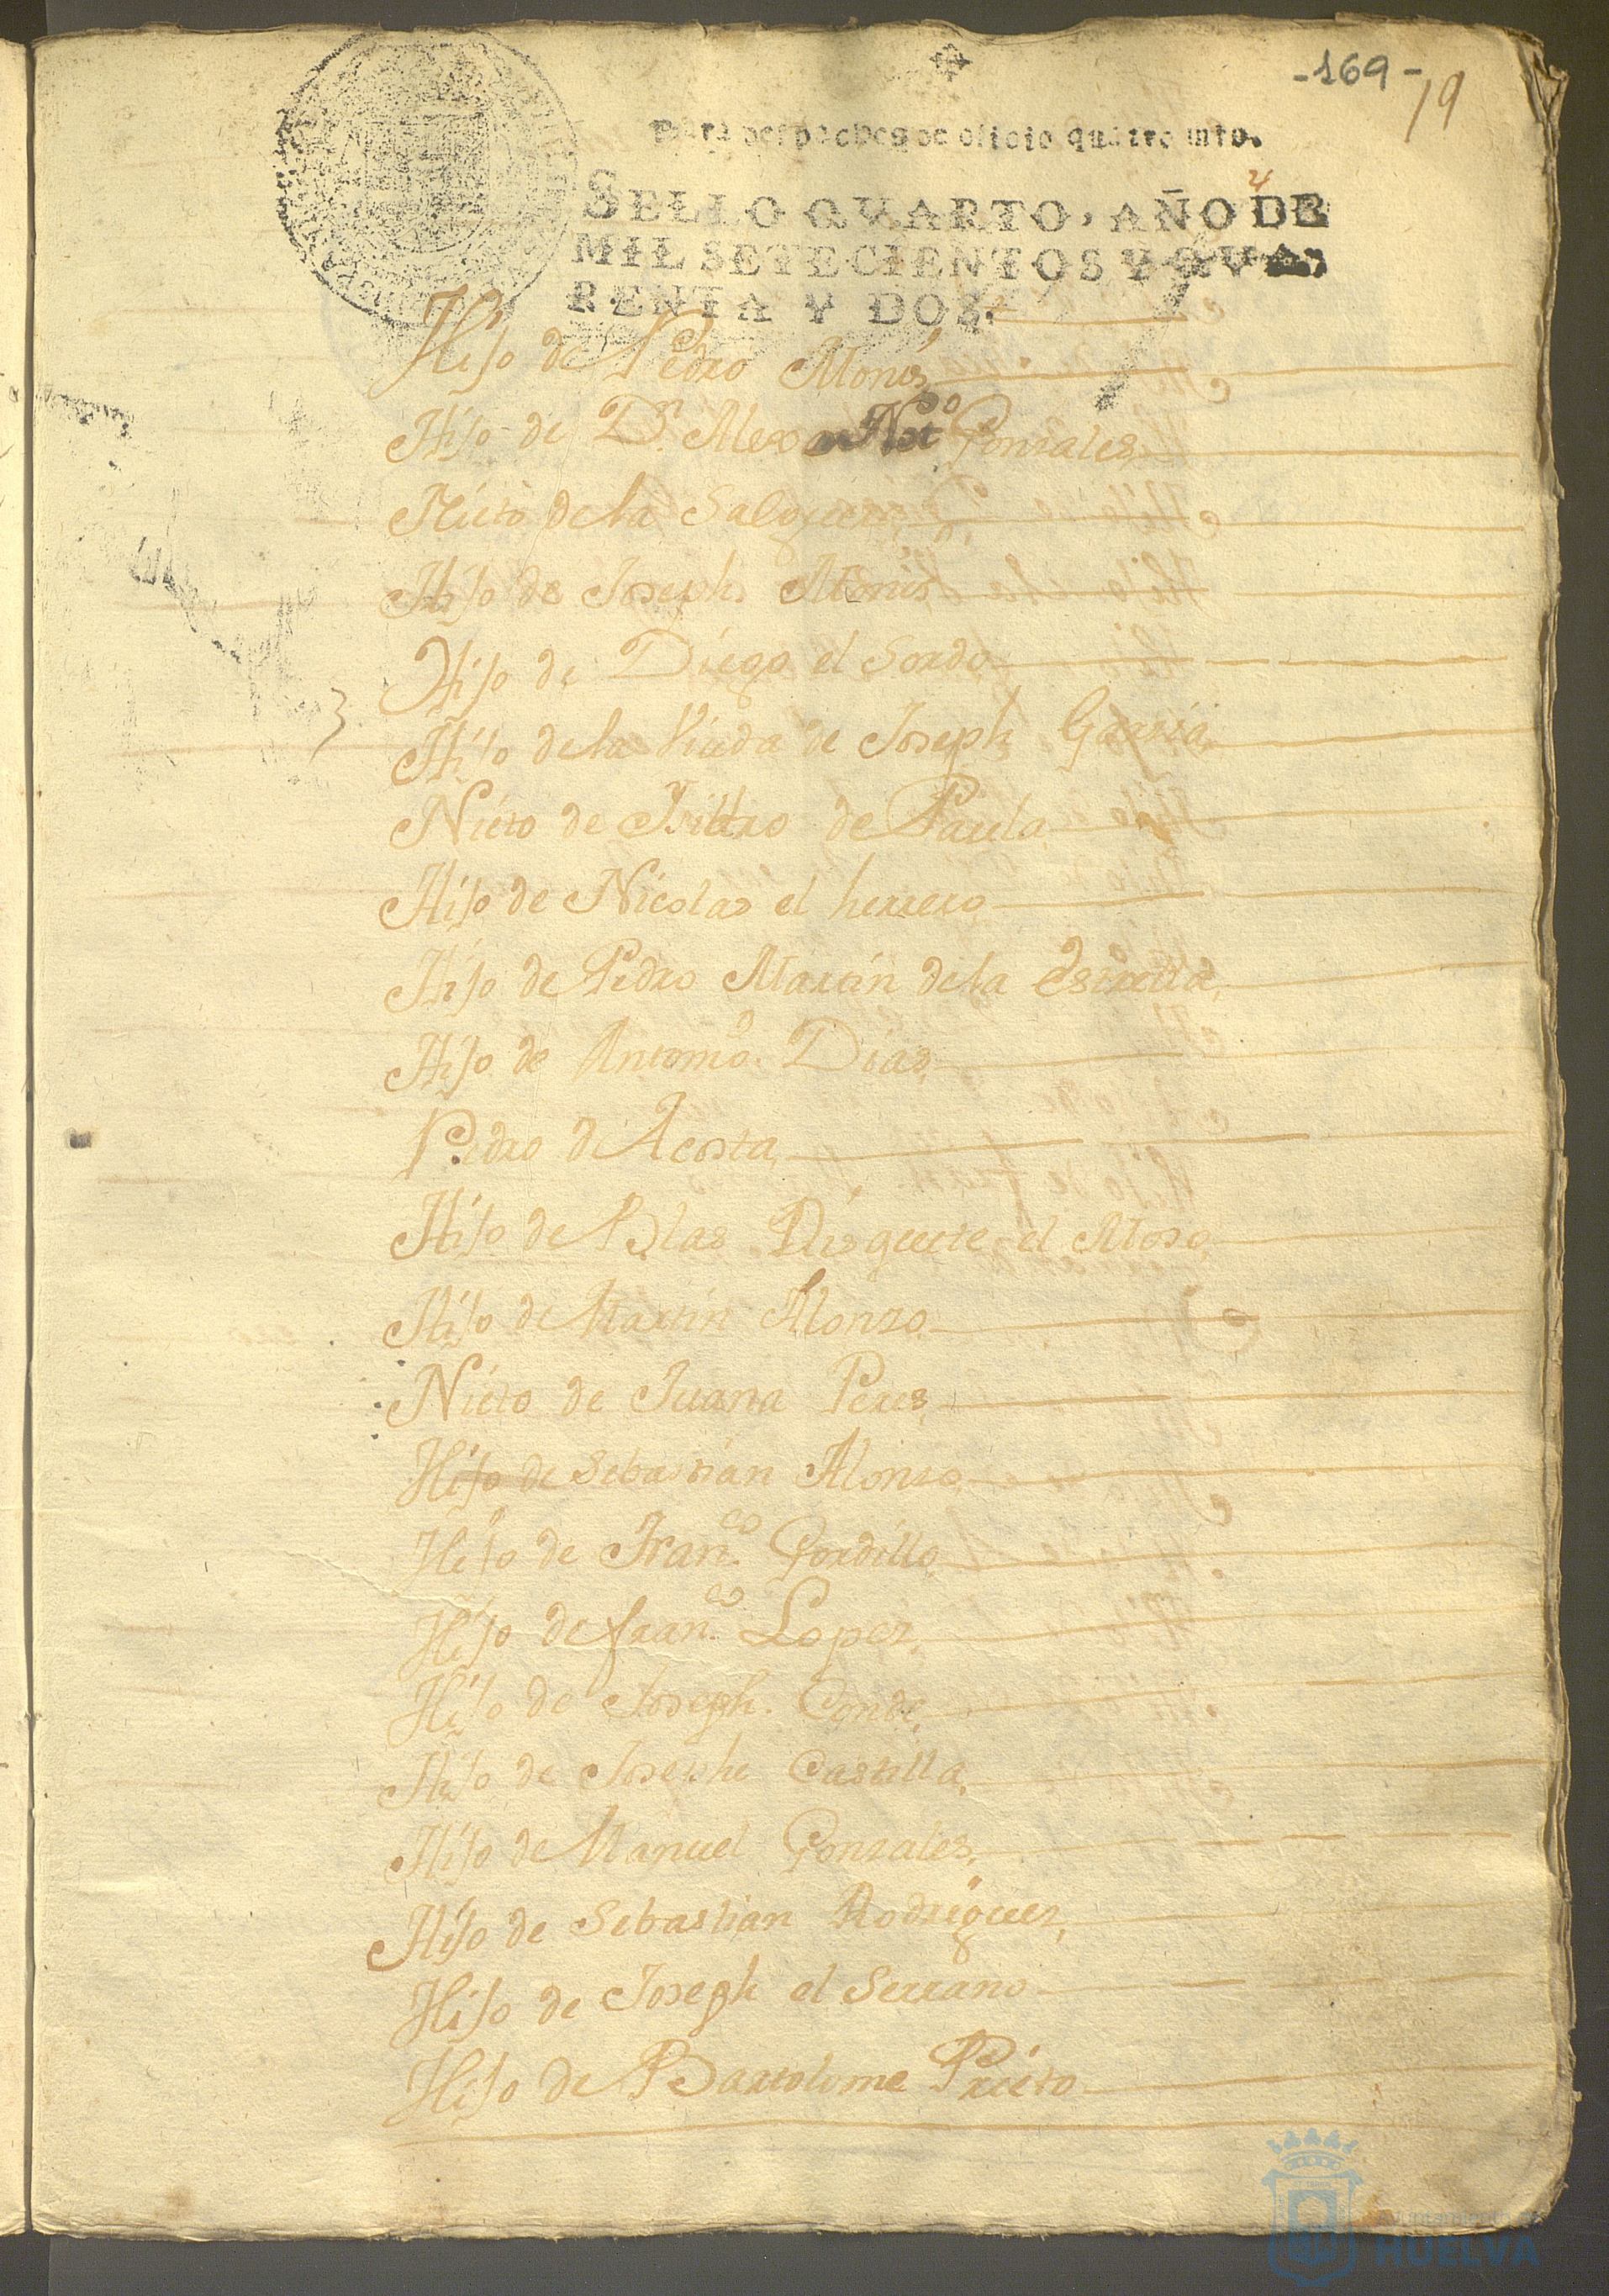 -169-
19
Para despachos de oficio quatro mrs.
4
SELLO QVARTO, AÑO DE
MIL SETECIENTOS Y QVA-
RENTA Y DOS.
Hijo de Pedro Monis
Hijo de Dn. Alexo Gonzales
Nieto de la
Hijo de Joseph Monis
Hijo de Diego el Sordo
Hijo de la Viuda de Joseph Garzia
Nieto de de Paula
Hijo de Nicolas el herrero
Hijo de Pedro Martin de la Estrella
Hijo de Antonio Dias
Pedro de Acosta
Hijo de Blas el Moso
Hijo de Martin Alonzo
Nieto de Juana Peres
Hijo de Sebastian Alonzo
Hijo de Franco. Gordillo
Hijo de franco. Lopez
Hijo de Joseph Conde
Hijo de Josephe Castilla
Hijo de Manuel Gonzales
Hijo de Sebastian Rodriguez
Hijo de Joseph el Serrano
Hijo de Bartolome Prieto
Ayuntamiento de
HUELVA